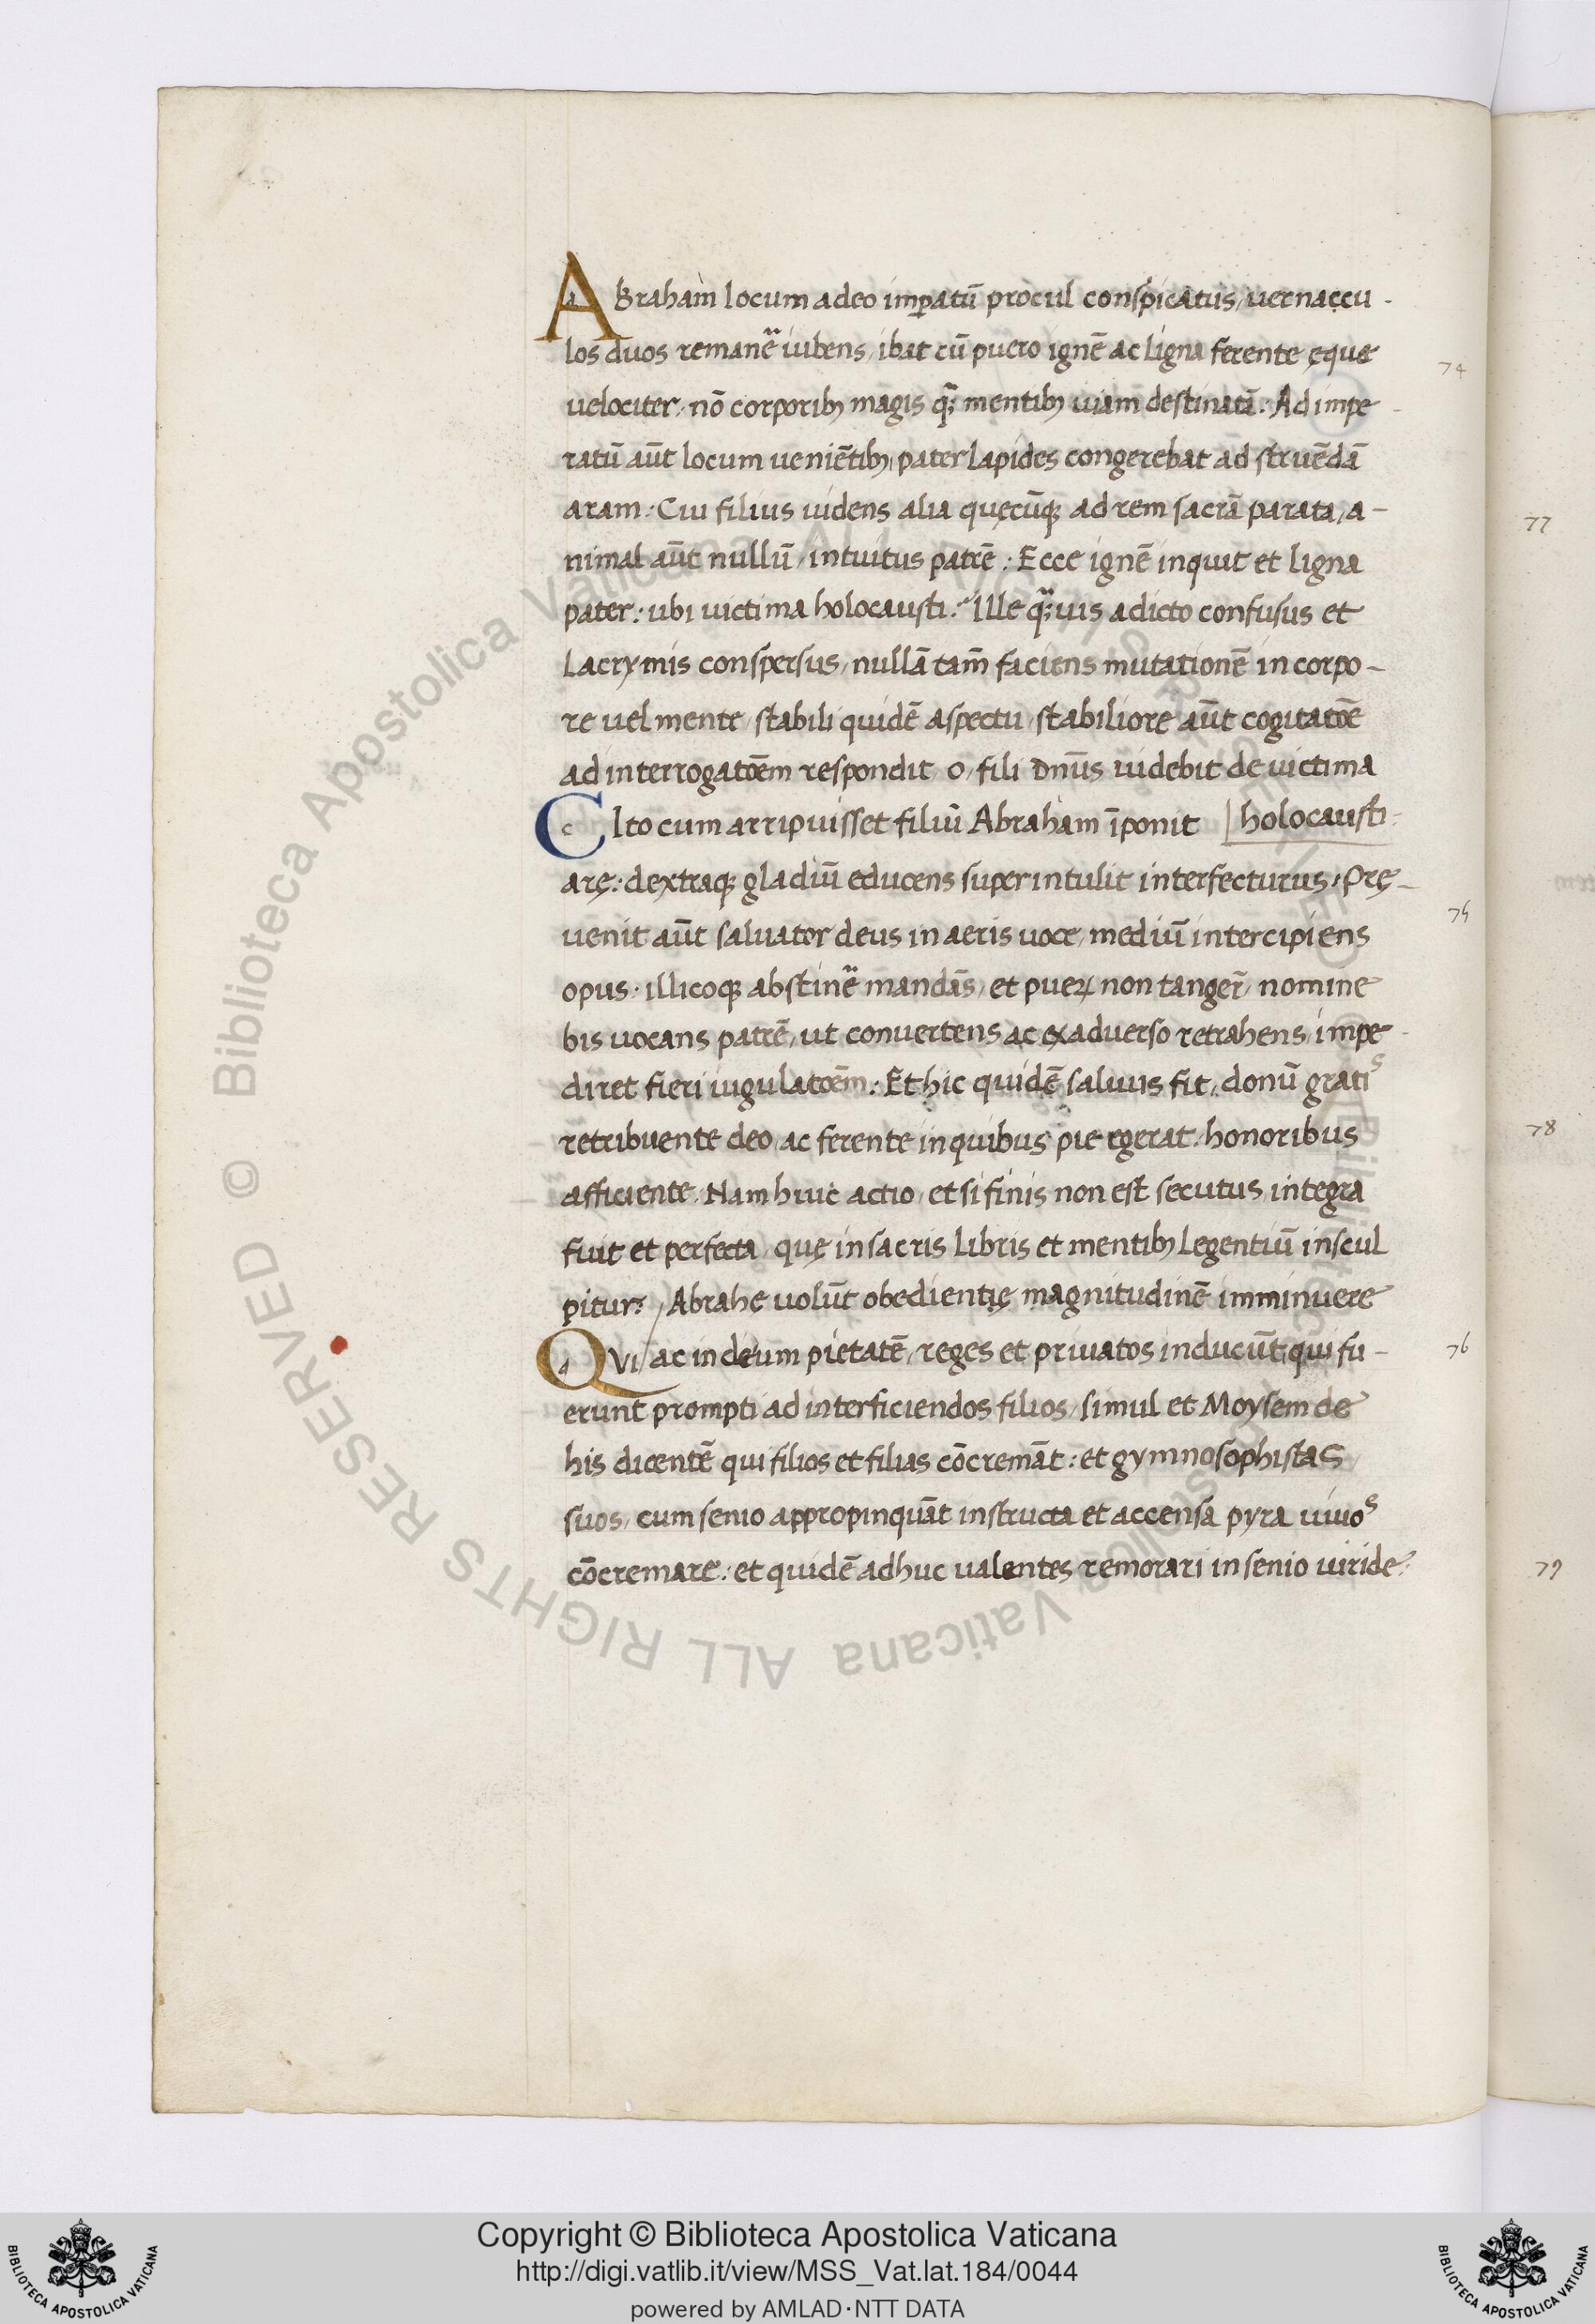 ABraham locum adeo imꝑatū procul conspicatus, vernaccu-
los duos remanē iubens, ibat cū puero ignē ac ligna ferente ęque
velociter, nō corporibꝫ magis q̃ mentibꝫ uiam destinatā: Ad impe
ratū aūt locum veniētibꝫ, pater lapides congerebat ad struēdā
aram: Cui filius uidens alia quęcūqꝫ ad rem sacrā parata, a-
nimal aūt nullū, intuitus patrē: Ecce ignē inquit et ligna
pater: ubi victima holocausti? Ille q̃uis a dicto confusus et
Lacrymis conspersus, nullā tam̄ faciens mutationē in corpo-
re vel mente, stabili quidē aspectu, stabiliore aūt cogitatōē
ad interrogatōēm respondit o, fili dn̄s uidebit de uictima
CIto cum arripuisset filiū Abraham īponit holocausti:
arę: dextraqꝫ gladiū educens superintulit interfecturus: Prę-
uenit aūt saluator deus in aeris uoce, mediū intercipiens
opus. illicoqꝫ abstinē mandās, et pueꝝ non tanger̄, nomine
bis vocans patrē, ut convertens ac ex adverso retrahens, impe
diret fieri iugulatōēm: Et hic quidē saluus fit, donū gratis
retribuente deo, ac ferente in quibus pie egerat, honoribus
afficiente. Nam huic actio, et si finis non est secutus, integra
fuit et perfecta, quę in sacris libris et mentibꝫ legentiū inscul
pitur: Abrahę uolūt obedientię magnitudinē imminuere
QVI ac in deum pietatē, reges et priuatos inducūt, qui fu-
erunt prompti ad interficiendos filios, simul et Moysem de
his dicentē qui filios et filias cōcremāt: et gymnosophistas
suos, cum senio appropinquāt instructa et accensa pyra uiuos
cōcremare: et quidē adhuc valentes remorari in senio uiride:
74
75
76
77
78
79
© Biblioteca Apostolica Vaticana ALL RIGHTS RESERVED
Copyright © Biblioteca Apostolica Vaticana
http://digi.vatlib.it/view/MSS_Vat.lat.184/0044
powered by AMLAD·NTT DATA
BIBLIOTECA APOSTOLICA VATICANA
BIBLIOTECA APOSTOLICA VATICANA